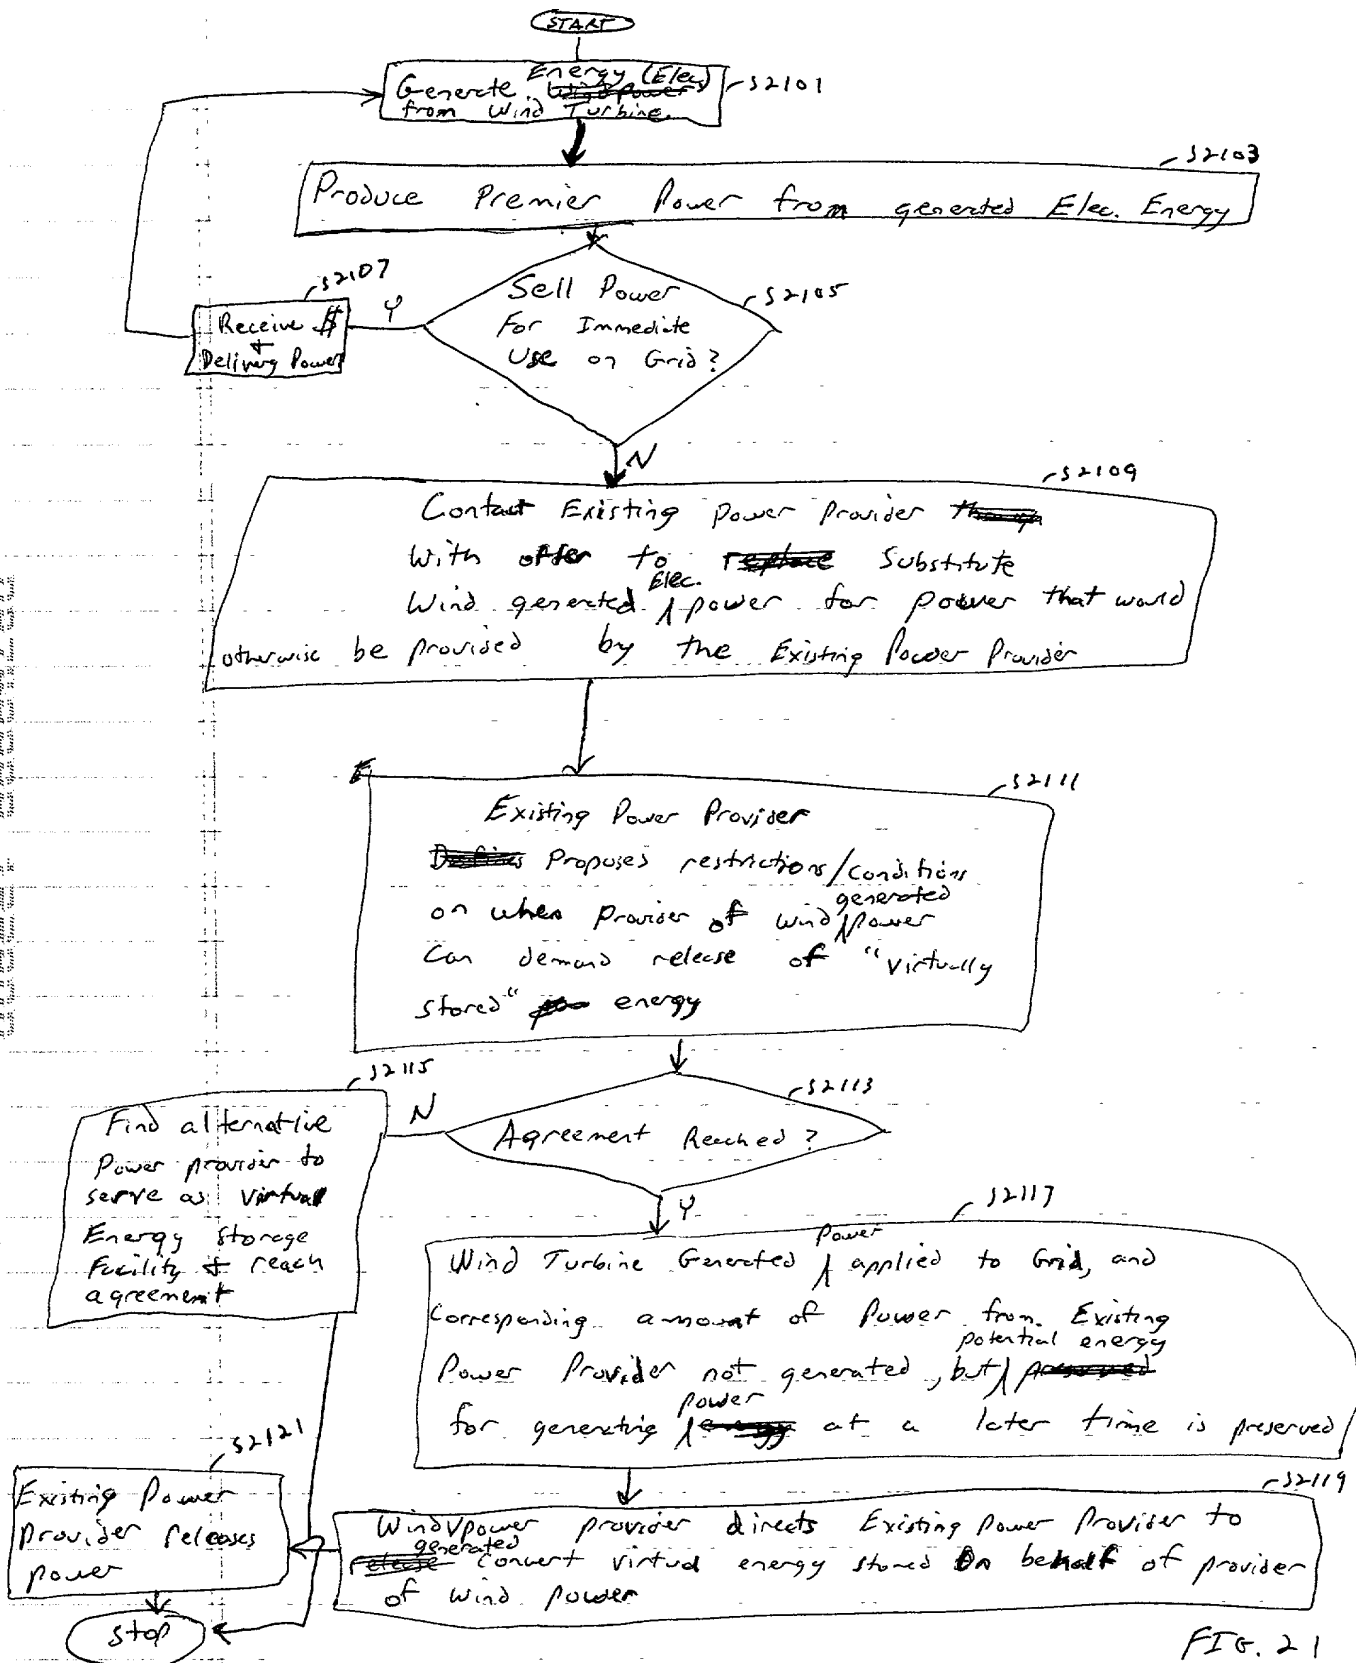 START
Generate Energy (Elec)
from Wind Turbine.
S2101
S2103
Produce Premier Power from generated Elec. Energy
S2107
Receive $
+
Delivery Power
Y
Sell Power
For Immediate
Use on Grid?
S2105
N
S2109
Contact Existing Power Provider
With offer to Substitute
Wind generated Elec. power for power that would
otherwise be provided by the Existing Power Provider
S2111
Existing Power Provider
Proposes restrictions/conditions
on when provider of wind generated power
Can demand release of "virtually
stored" energy
S2115
Find alternative
Power provider to
serve as virtual
Energy storage
Facility & reach
agreement
N
Agreement Reached?
S2113
Y
S2117
Wind Turbine Generated Power applied to Grid, and
Corresponding amount of Power from Existing
Power Provider not generated, but potential energy
for generating power at a later time is preserved
S2121
Existing Power
Provider releases
power
S2119
Wind generated power provider directs Existing Power Provider to
Convert virtual energy stored On behalf of provider
of wind power
Stop
FIG. 21